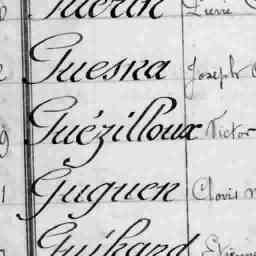 Guérin Pierre
Guesna Joseph
Guézilloux Victor
Guguen Clovis
Guihard Étienne